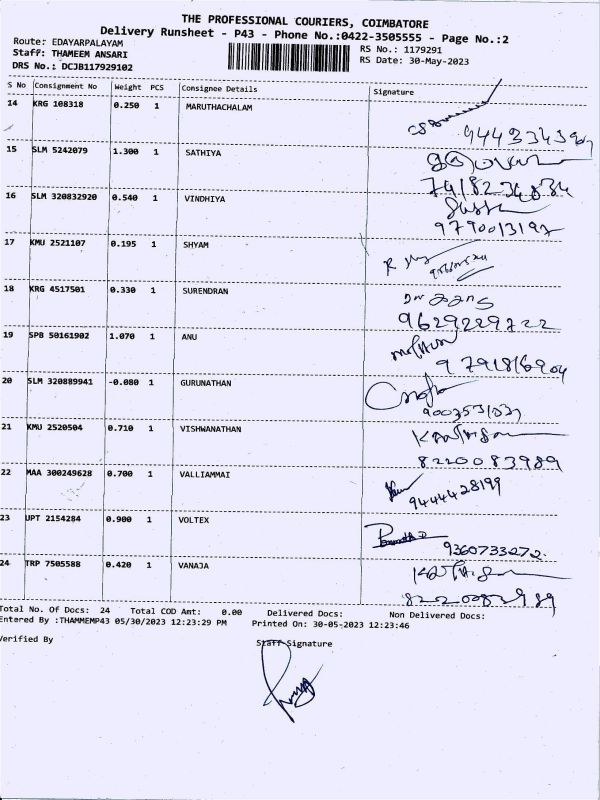 THE PROFESSIONAL COURIERS, COIMBATORE
Delivery Runsheet - P43 - Phone No.:0422-3505555 - Page No.:2
Route: EDAYARPALAYAM
RS No.: 1179291
Staff: THAMEEM ANSARI
RS Date: 30-May-2023
DRS No.: DCJB117929102
S No Consignment No Weight PCS Consignee Details Signature
14 KRG 108318 0.250 1 MARUTHACHALAM
15 SLM 5242079 1.300 1 SATHIYA
16 SLM 320832920 0.540 1 VINDHIYA
9790013192
17 KMU 2521107 0.195 1 SHYAM
18 KRG 4517501 0.330 1 SURENDRAN
9629229222
19 SPB 50161902 1.070 1 ANU
9791816904
20 SLM 320889941 -0.080 1 GURUNATHAN
21 KMU 2520504 0.710 1 VISHWANATHAN
8220083989
22 MAA 300249628 0.700 1 VALLIAMMAI
9444428199
23 UPT 2154284 0.900 1 VOLTEX
9360733272.
24 TRP 7505588 0.420 1 VANAJA
8220083989
Total No. Of Docs: 24 Total COD Amt: 0.00 Delivered Docs: Non Delivered Docs:
Entered By :THAMMEMP43 05/30/2023 12:23:29 PM Printed On: 30-05-2023 12:23:46
Verified By Staff Signature